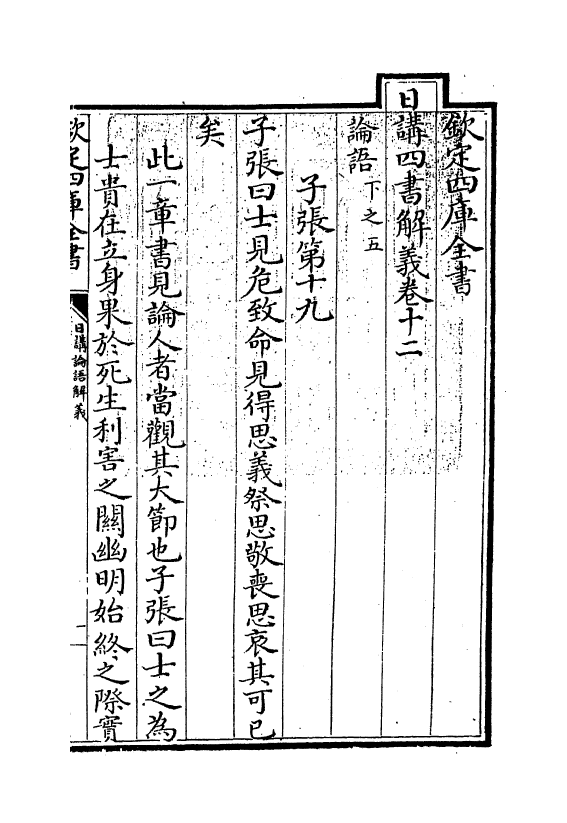 欽定四庫全書
日講四書解義卷十二
論語下之五
子張第十九
子張曰士見危致命見得思義祭思敬喪思哀其可已
矣
此一章書見論人者當觀其大節也子張曰士之為
士貴在立身果於死生利害之關幽明始終之際實
欽定四庫全書
日講論語解義
一